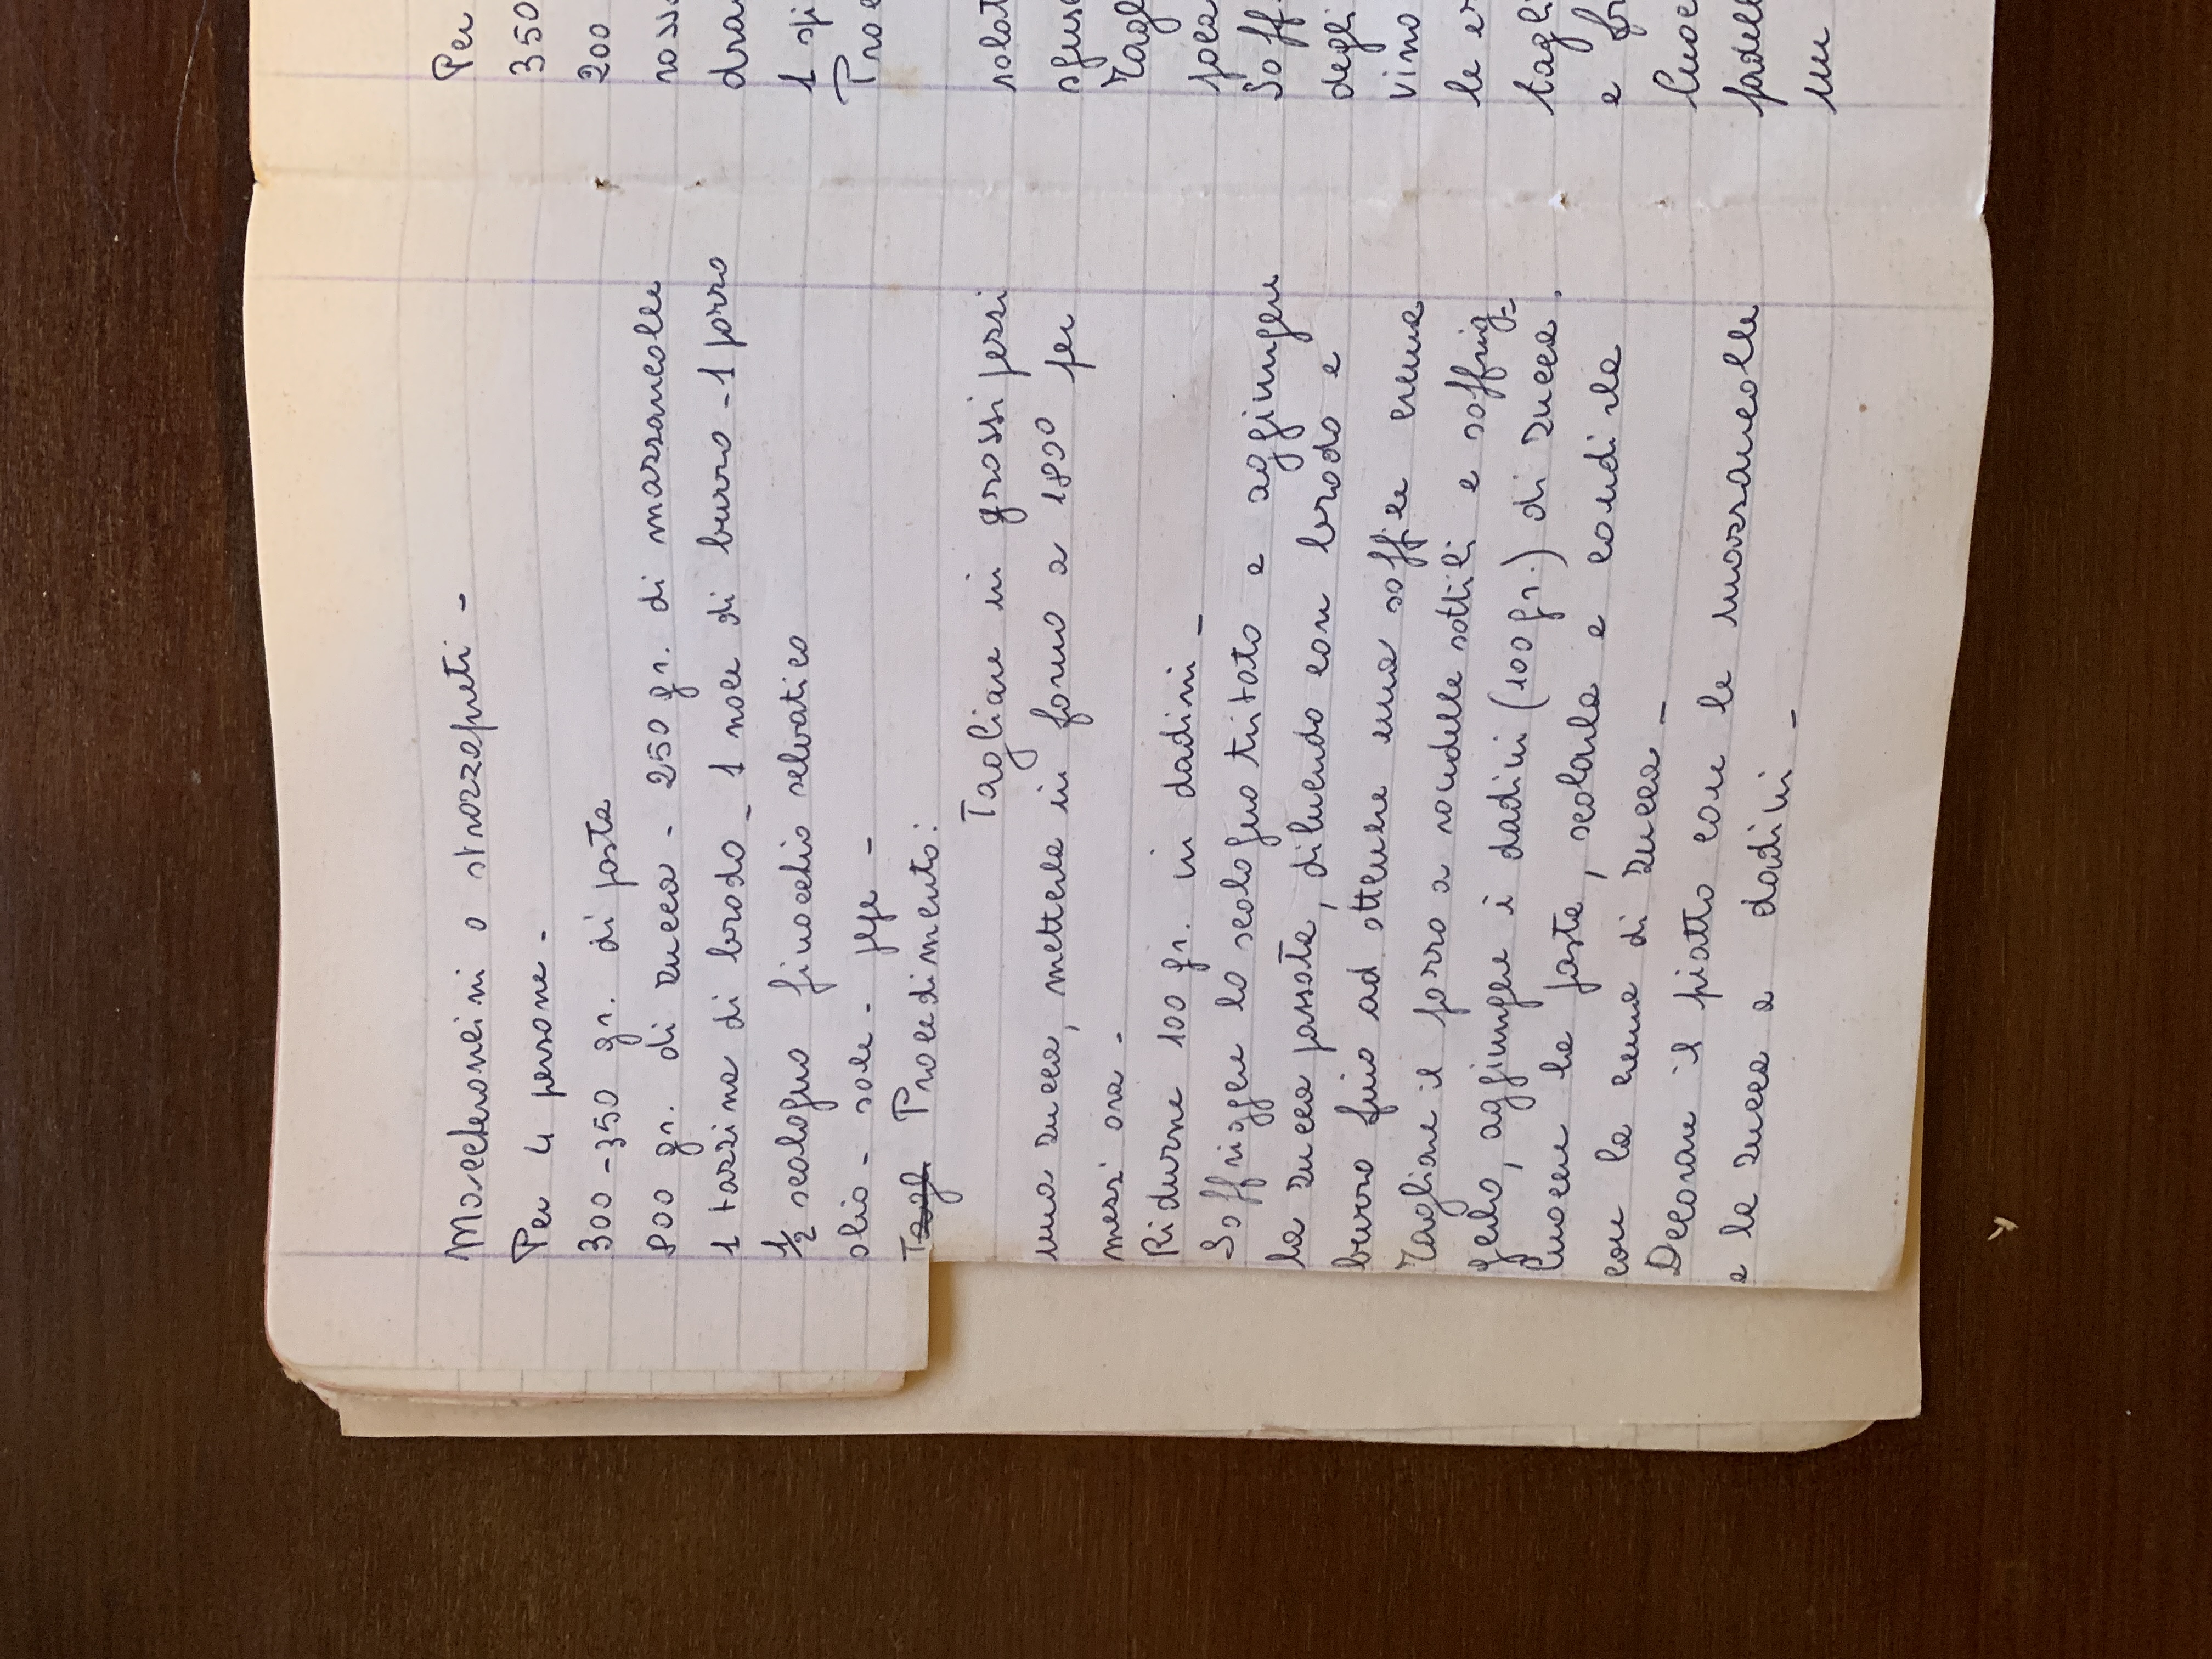 Maccheroncini o strozzapreti -
Per 4 persone -
300-350 gr. di pasta
800 gr. di zucca - 250 gr. di mazzancolle
1 tazzina di brodo - 1 noce di burro - 1 porro
1/2 scalogno finocchio selvatico
olio - sale - pepe -
Tagl. Procedimento:
Tagliare in grossi pezzi
una zucca, metterla in forno a 180° per
mezz'ora -
Ridurne 100 gr. in dadini -
Soffriggere lo scalogno tritato e aggiungere
la zucca passata, diluendo con brodo e
burro fino ad ottenere una soffice crema
Tagliare il porro a rondelle sottili e soffrig=
gerlo, aggiungere i dadini (100 gr.) di zucca.
Cuocere la pasta, scolarla e condirla
con la crema di zucca -
Decorare il piatto con le mazzancolle
e la zucca a dadini -
Per
350
200
ross
dra
1 spi
Proc
salat
sgus
Tagl
poca
Soff
degli
vino
le er
tagli
e fr
Cuoc
padell
un